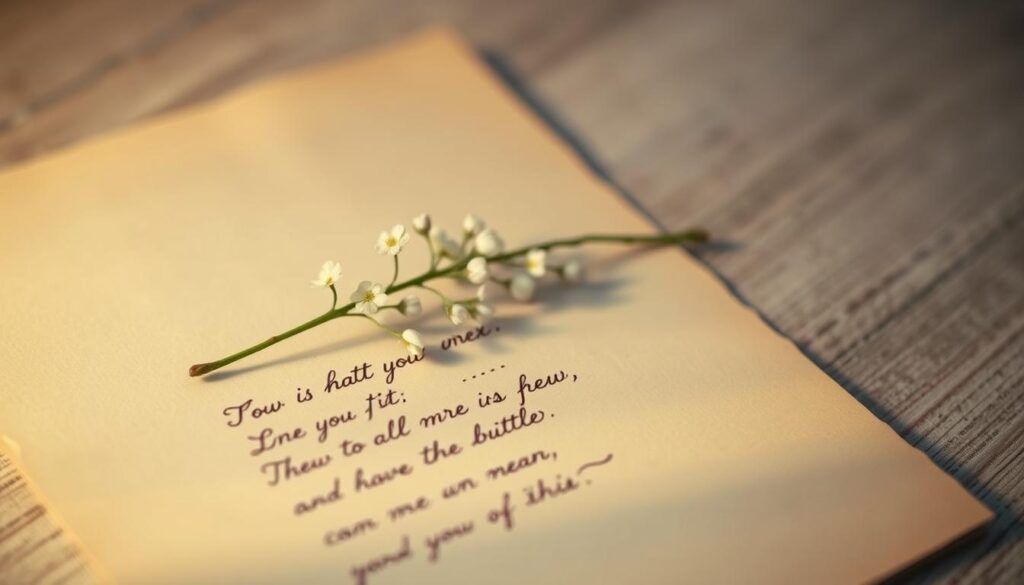 Tow is hatt you vnex.
Lne you fit: .....
Thew to all mre iis few,
and have the buttle.
com me un mean,
yand you of this.